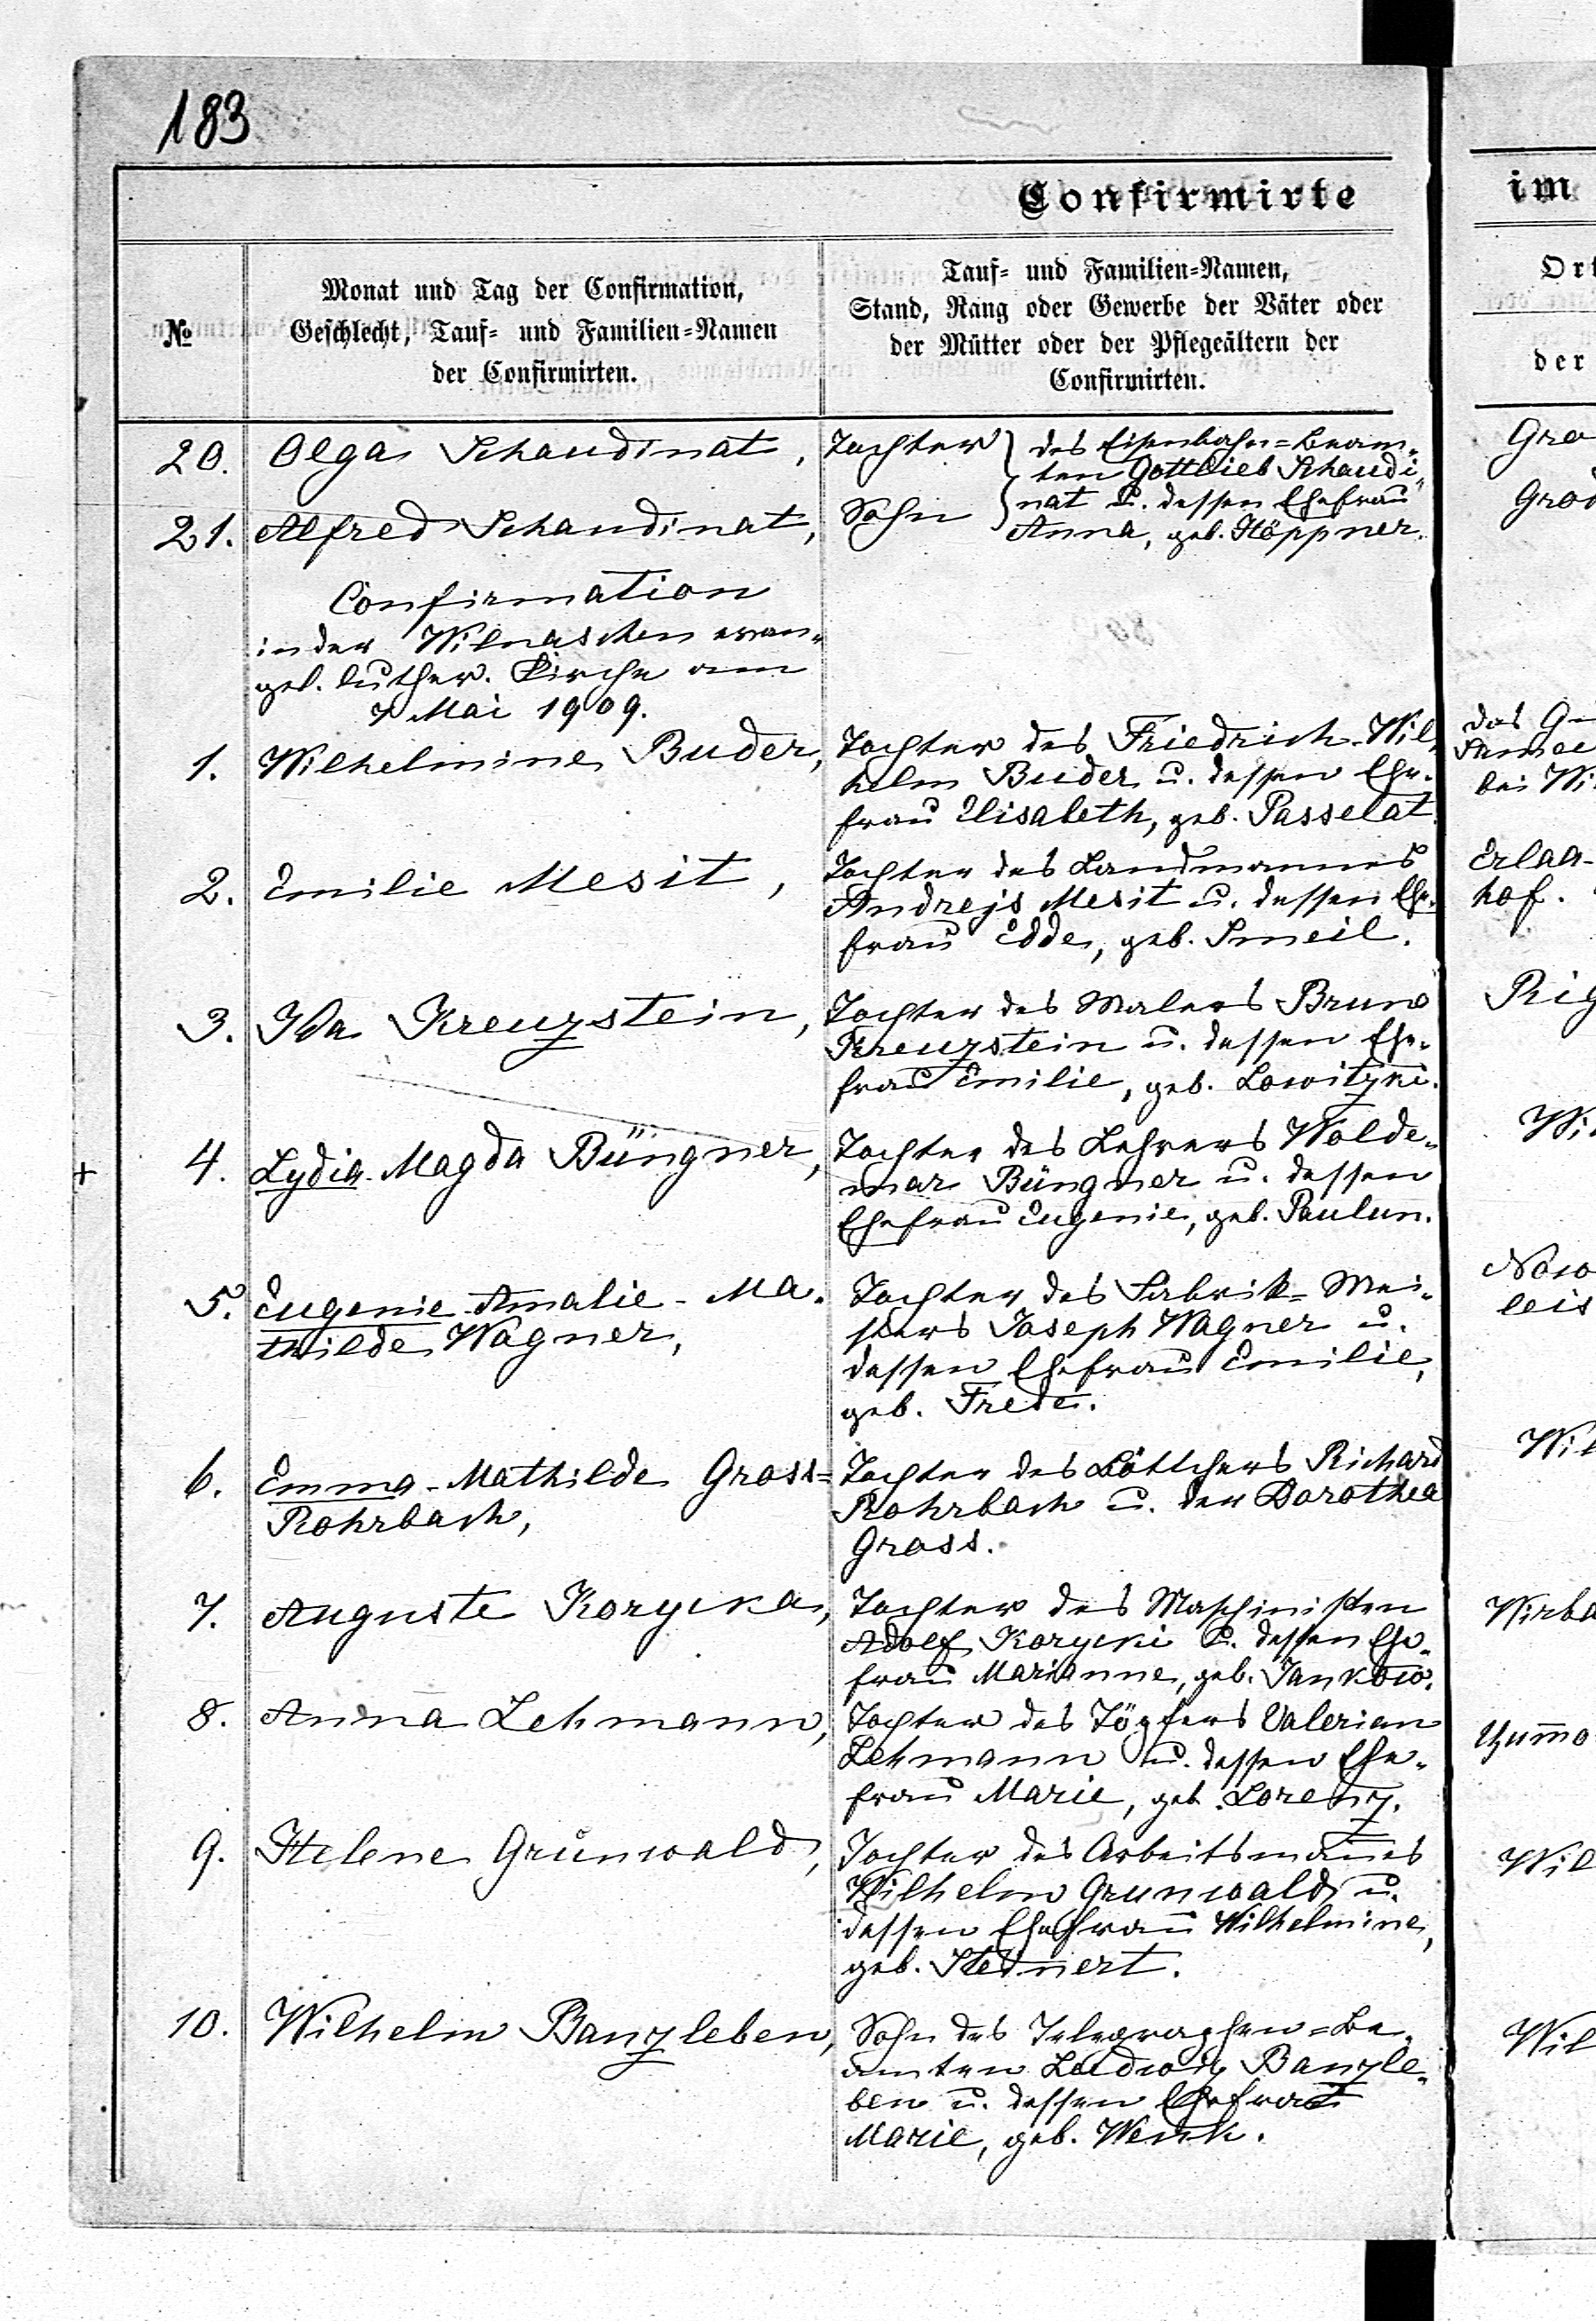 183
Confirmirte
im
№
Monat und Tag der Confirmation,
Geschlecht, Tauf- und Familien-Namen
der Confirmirten.
Tauf- und Familien-Namen,
Stand, Rang oder Gewerbe der Väter oder
der Mütter oder der Pflegeältern der
Confirmirten.
Ort
der
20. Olga Schaudinat, Tochter
des Eisenbahn=Beam-
ten Gottlieb Schaudi-
21. Alfred Schaudinat, Sohn
nat u. dessen Ehefrau
Anna, geb. Höppner.
Gro
Grod
Confirmation
in der Wilnaschen evan-
gel. luther. Kirche am
7 Mai 1909.
1. Wilhelmine Buder,
Tochter des Friedrich-Wil-
helm Buder u. dessen Ehe-
frau Elisabeth, geb. Passelat.
das G
bei Wi
2. Emilie Mesit,
Tochter des Landmannes
Andrejs Mesit u. dessen Ehe-
frau Edde, geb. Smeil.
Erlaa-
hof.
3. Ida Kreuzstein,
Tochter des Malers Bruno
Kreuzstein u. dessen Ehe-
frau Emilie, geb. Lowitzki.
Rig
+ 4. Lydia-Magda Büngner,
Tochter des Lehrers Wolde-
mar Büngner u. dessen
Ehefrau Eugenie, geb. Paulun.
Wil
5. Eugenie-Amalie-Ma-
thilde Wagner,
Tochter des Fabrik=Mei-
sters Joseph Wagner u.
dessen Ehefrau Emilie,
geb. Frede.
Now
leis
6. Emma-Mathilde Gross=
Rohrbach,
Tochter des Böttchers Richard
Rohrbach u. der Dorothea
Gross.
Wil
7. Auguste Korycka,
Tochter des Maschinisten
Adolf Korycki u. dessen Ehe-
frau Marianne, geb. Jankow.
Wirba
8. Anna Lehmann,
Tochter des Töpfers Valerian
Lehmann u. dessen Ehe-
frau Marie, geb. Lorenz.
9. Helene Grunwald,
Tochter des Arbeitsmannes
Wilhelm Grunwald u.
dessen Ehefrau Wilhelmine,
geb. Steinert.
Wil
10. Wilhelm Banzleben,
Sohn des Telegraphen=Be-
amten Ludwig Banzle-
ben u. dessen Ehefrau
Marie, geb. Wenk.
Wil